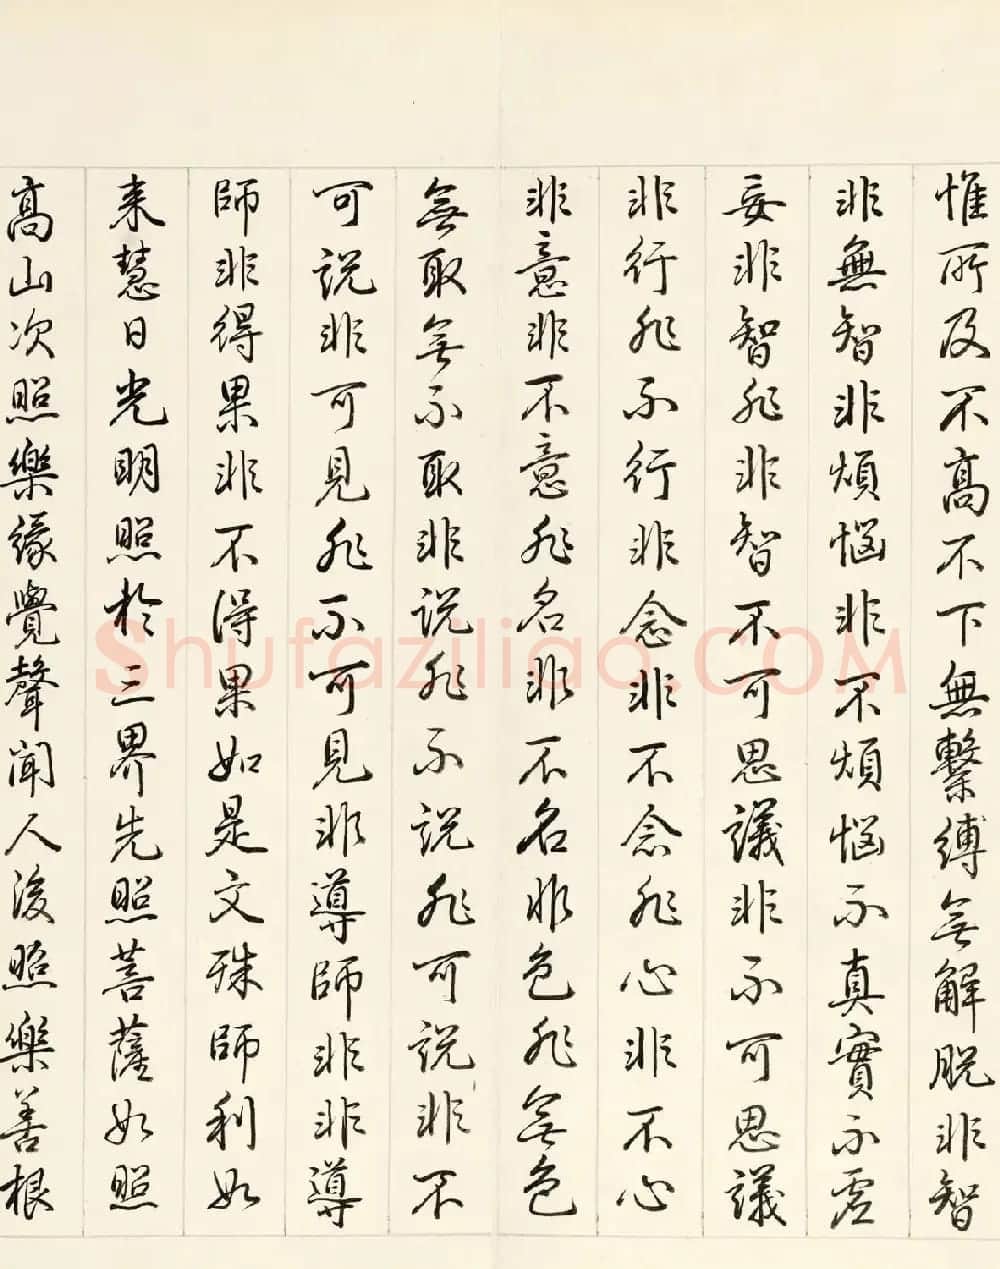 惟所及不高不下無繫縛無解脱非智
非無智非煩惱非不煩惱不真實不虛
妄非智非非智不可思議非不可思議
非行非不行非念非不念非心非不心
非意非不意非名非不名非色非無色
無取無不取非説非不説非可説非不
可説非可見非不可見非導師非非導
師非得果非不得果如是文殊師利如
来慧日光明照於三界先照菩薩如照
高山次照樂緣覺聲聞人後照樂善根
Shufaziliao.COM